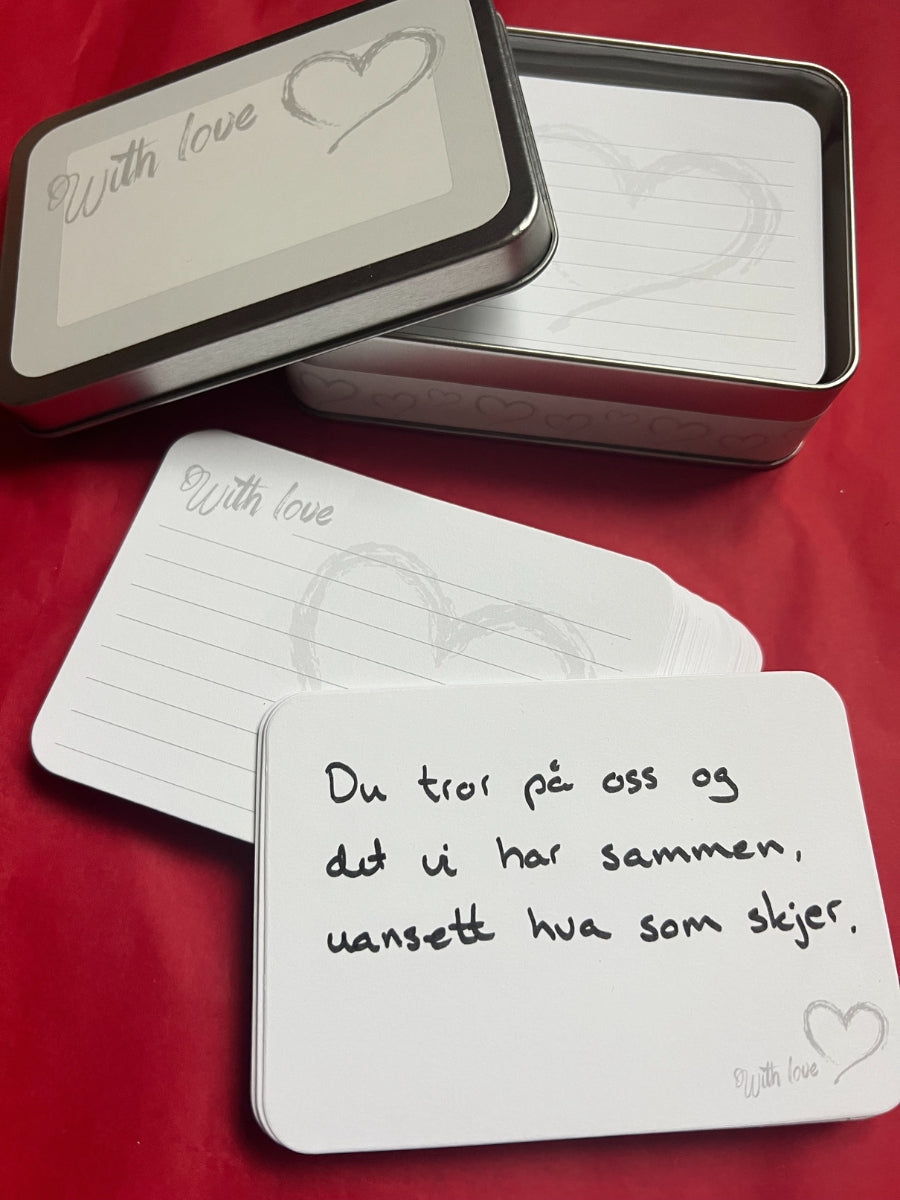 With love
With love
Du tror på oss og
det vi har sammen,
uansett hva som skjer.
With love